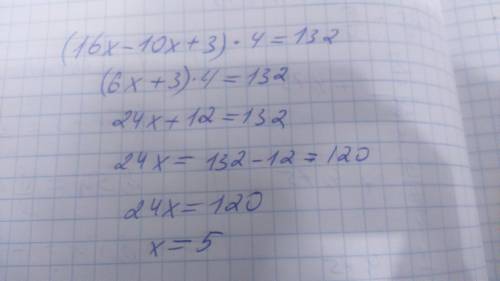 (16x-10x+3)·4=132
(6x+3)·4=132
24x+12=132
24x= 132-12=120
24x=120
x=5